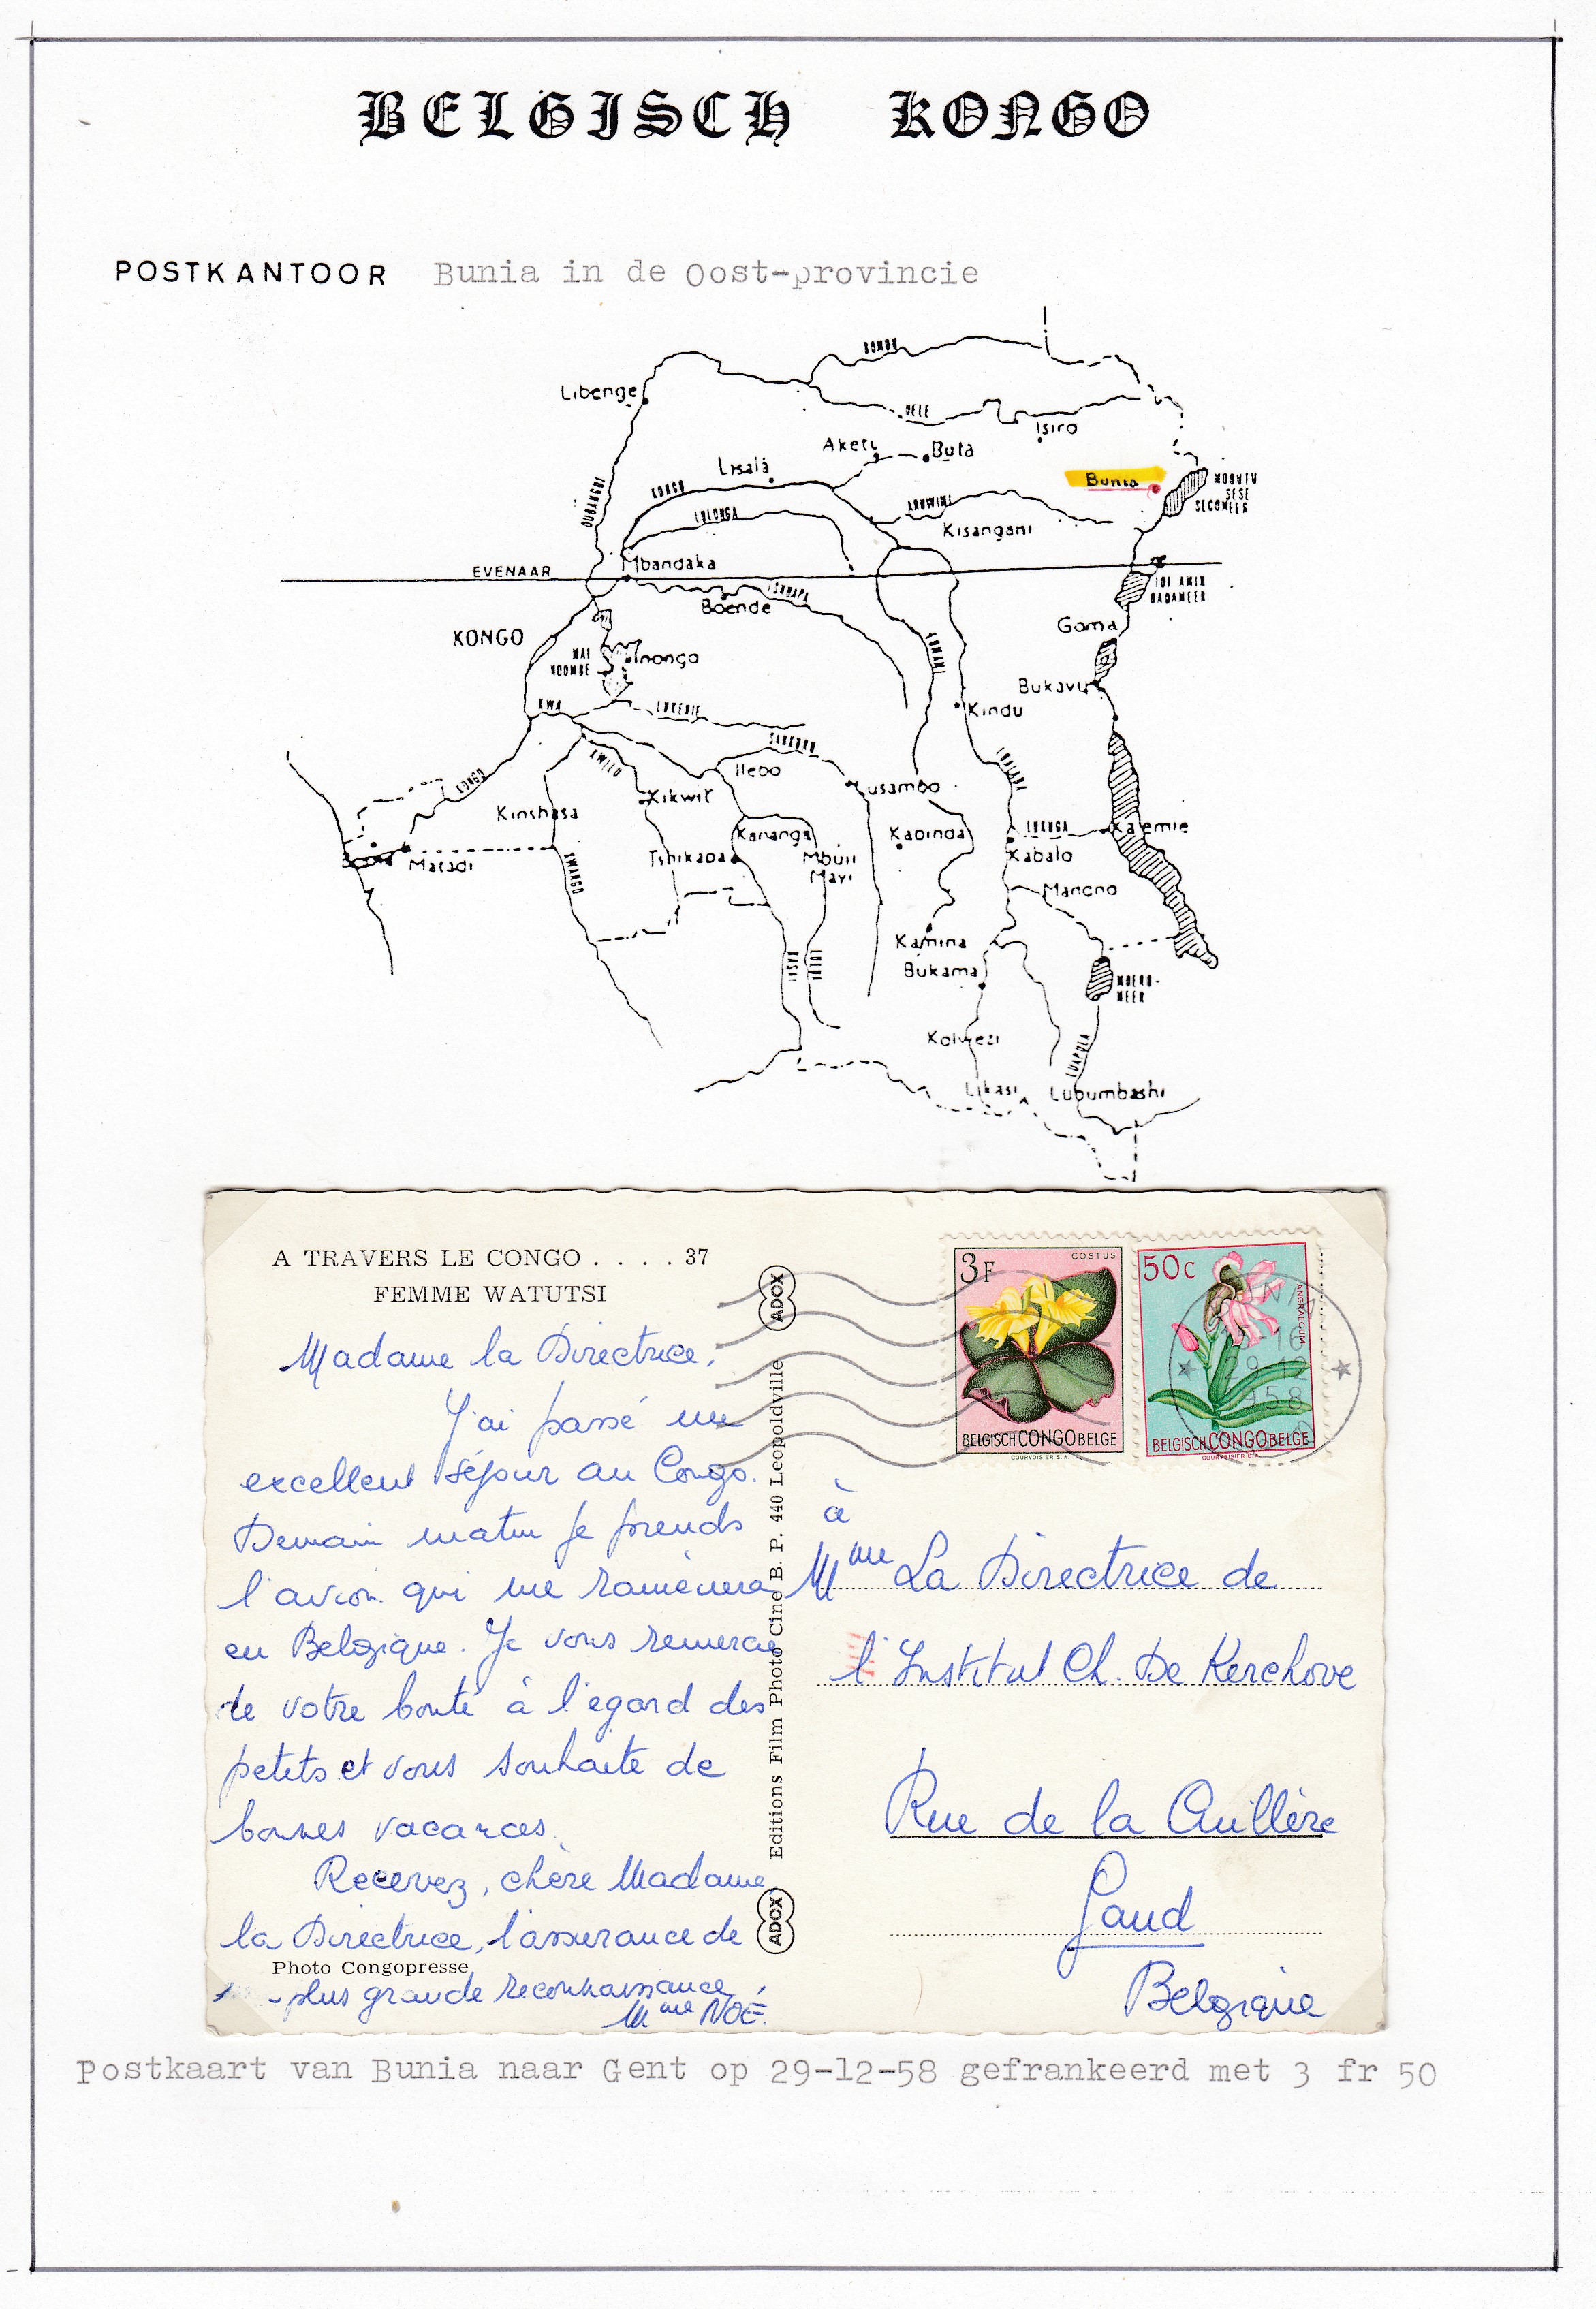 BELGISCH KONGO
POSTKANTOOR Bunia in de Oost-provincie
BOMU
Libenge
UELE
Isiro
Aketi
Buta
Lisala
Bunia
MOBUTU
SESE
SECOMEER
OUBANGUI
KONGO
ARUWIMI
LULONGA
Kisangani
Mbandaka
EVENAAR
IDI AMIN
DADAMEER
TSHUAPA
Boende
Goma
KONGO
LOMAMI
MAI
NDOMBE
Inongo
Bukavu
KWA
LUKENIE
Kindu
SANKURU
KWILU
Ilebo
LUALABA
KONGO
Kikwit
Lusambo
Kinshasa
Kananga
Kabinda
LUKUGA
Kalemie
Boma
Matadi
KWANGO
Tshikapa
Mbuji
Mayi
Kabalo
Manono
Kamina
KASAI
LULUA
Bukama
MOERO-
MEER
Kolwezi
LUAPULA
Likasi
Lubumbashi
A TRAVERS LE CONGO . . . . 37
FEMME WATUTSI
Madame la Directrice,
J'ai passé un
excellent séjour au Congo.
Demain matin je prends
l'avion qui me ramènera
en Belgique. Je vous remercie
de votre bonté à l'égard des
petits et vous souhaite de
bonnes vacances.
Recevez, chère Madame
la Directrice, l'assurance de
plus grande reconnaissance,
Mme NOÉ.
Photo Congopresse
ADOX
Editions Film Photo Ciné B. P. 440 Leopoldville
ADOX
3F
COSTUS
BELGISCH CONGO BELGE
COURVOISIER S.A.
50c
ANGRAECUM
BELGISCH CONGO BELGE
COURVOISIER S.A.
16
29-12
1958
à
Mme La Directrice de
l'Institut Ch. De Kerchove
Rue de la Cuillère
Gand
Belgique
Postkaart van Bunia naar Gent op 29-12-58 gefrankeerd met 3 fr 50